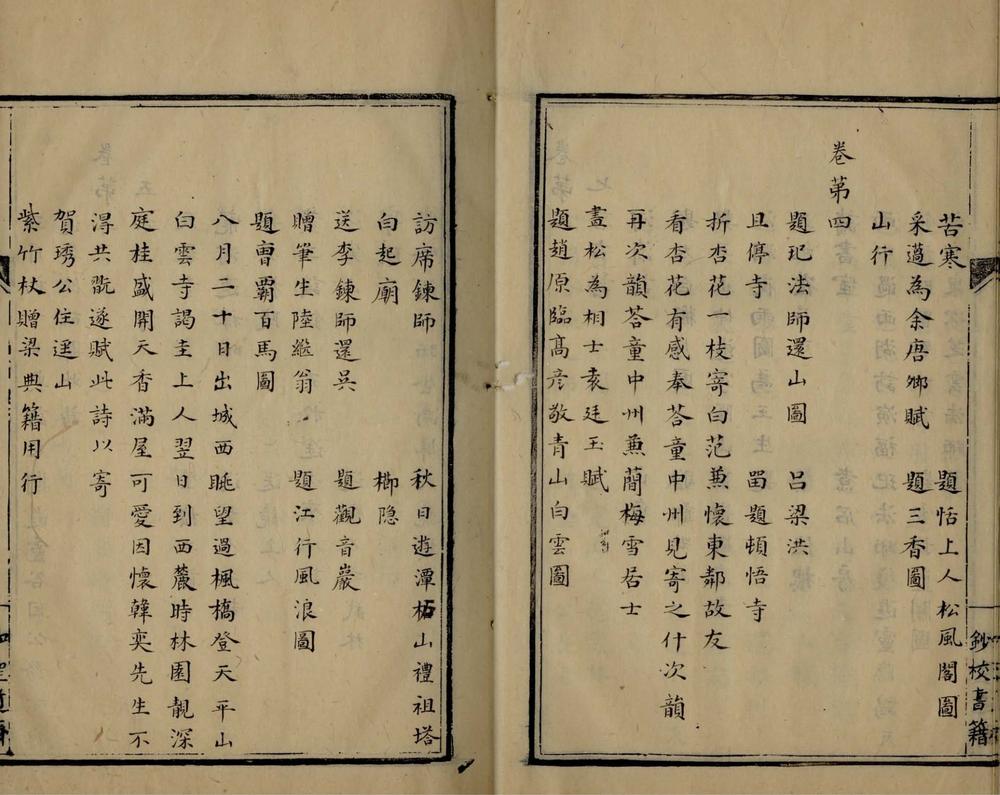 苦寒 題恬上人松風閣圖
采薖為余唐卿賦 題三香圖
山行
卷第四
題玘法師還山圖 呂梁洪
且停寺 畱題頓悟寺
折杏花一枝寄白范兼懷東鄰故友
看杏花有感奉荅童中州見寄之什次韻
再次韻荅童中州兼蕳梅雪居士
畫松為相士袁廷玉賦
題趙原臨高彥敬青山白雲圖
訪席鍊師 秋日遊潭柘山禮祖塔
白起廟 櫛隐
送李鍊師還吳 題觀音巖
贈筆生陸繼翁 題江行風浪圖
題曹霸百馬圖
八月二十日出城西眺望過楓橋登天平山
白雲寺謁圭上人翌日到西麓時林園靚深
庭桂盛開天香滿屋可愛因懷韓奕先生不
淂共翫遂賦此詩以寄
賀琇公住遥山
紫竹杖贈梁典籍用行
鈔校書籍